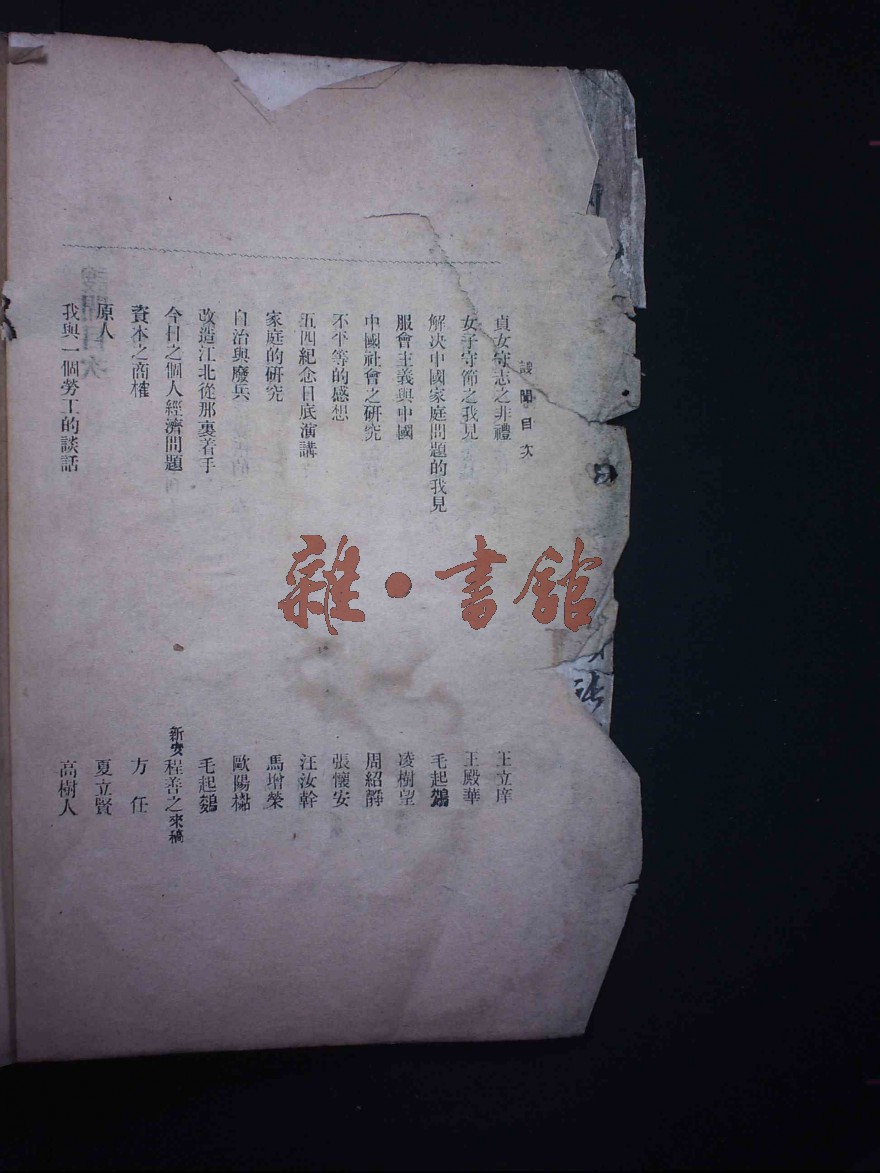 誤聞目次
貞女守志之非禮 王立庠
女子守節之我見 王殿華
解決中國家庭問題的我見 毛起鵕
服會主義與中國 凌樹望
中國社會之研究 周紹靜
不平等的感想 張懷安
五四紀念日底演講 汪汝幹
家庭的研究 馬增榮
自治與廢兵 歐陽
改造江北從那裏着手 毛起鵕
今日之個人經濟問題 新安程善之來稿
資本之商榷 方任
原人 夏立賢
我與一個勞工的談話 高樹人
雜·書館